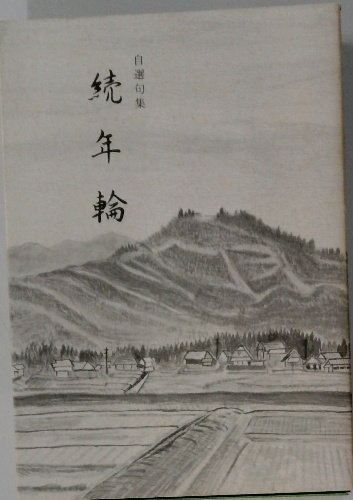 自選句集
続年輪